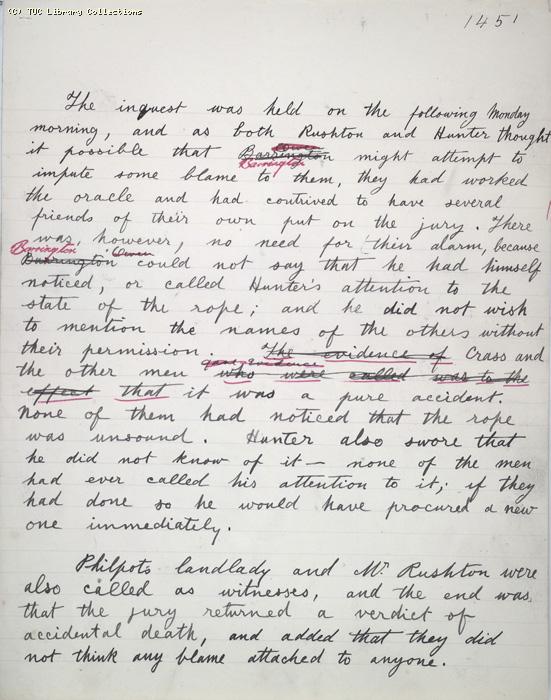 (C) TUC Library Collections
1451
The inquest was held on the following Monday
morning, and as both Rushton and Hunter thought
Owen
it possible that Barrington might attempt to
Barrington
impute some blame to them, they had worked
the oracle and had contrived to have several
friends of their own put on the jury. There
was, however, no need for their alarm, because
Barrington Owen
Barrington could not say that he had himself
noticed, or called Hunter's attention to the
state of the rope; and he did not wish
to mention the names of the others without
their permission. The evidence of Crass and
gave evidence
the other men who were called was to the
effect that it was a pure accident.
None of them had noticed that the rope
was unsound. Hunter also swore that
he did not know of it — none of the men
had ever called his attention to it; if they
had done so he would have procured a new
one immediately.
Philpots landlady and Mr Rushton were
also called as witnesses, and the end was
that the jury returned a verdict of
accidental death, and added that they did
not think any blame attached to anyone.